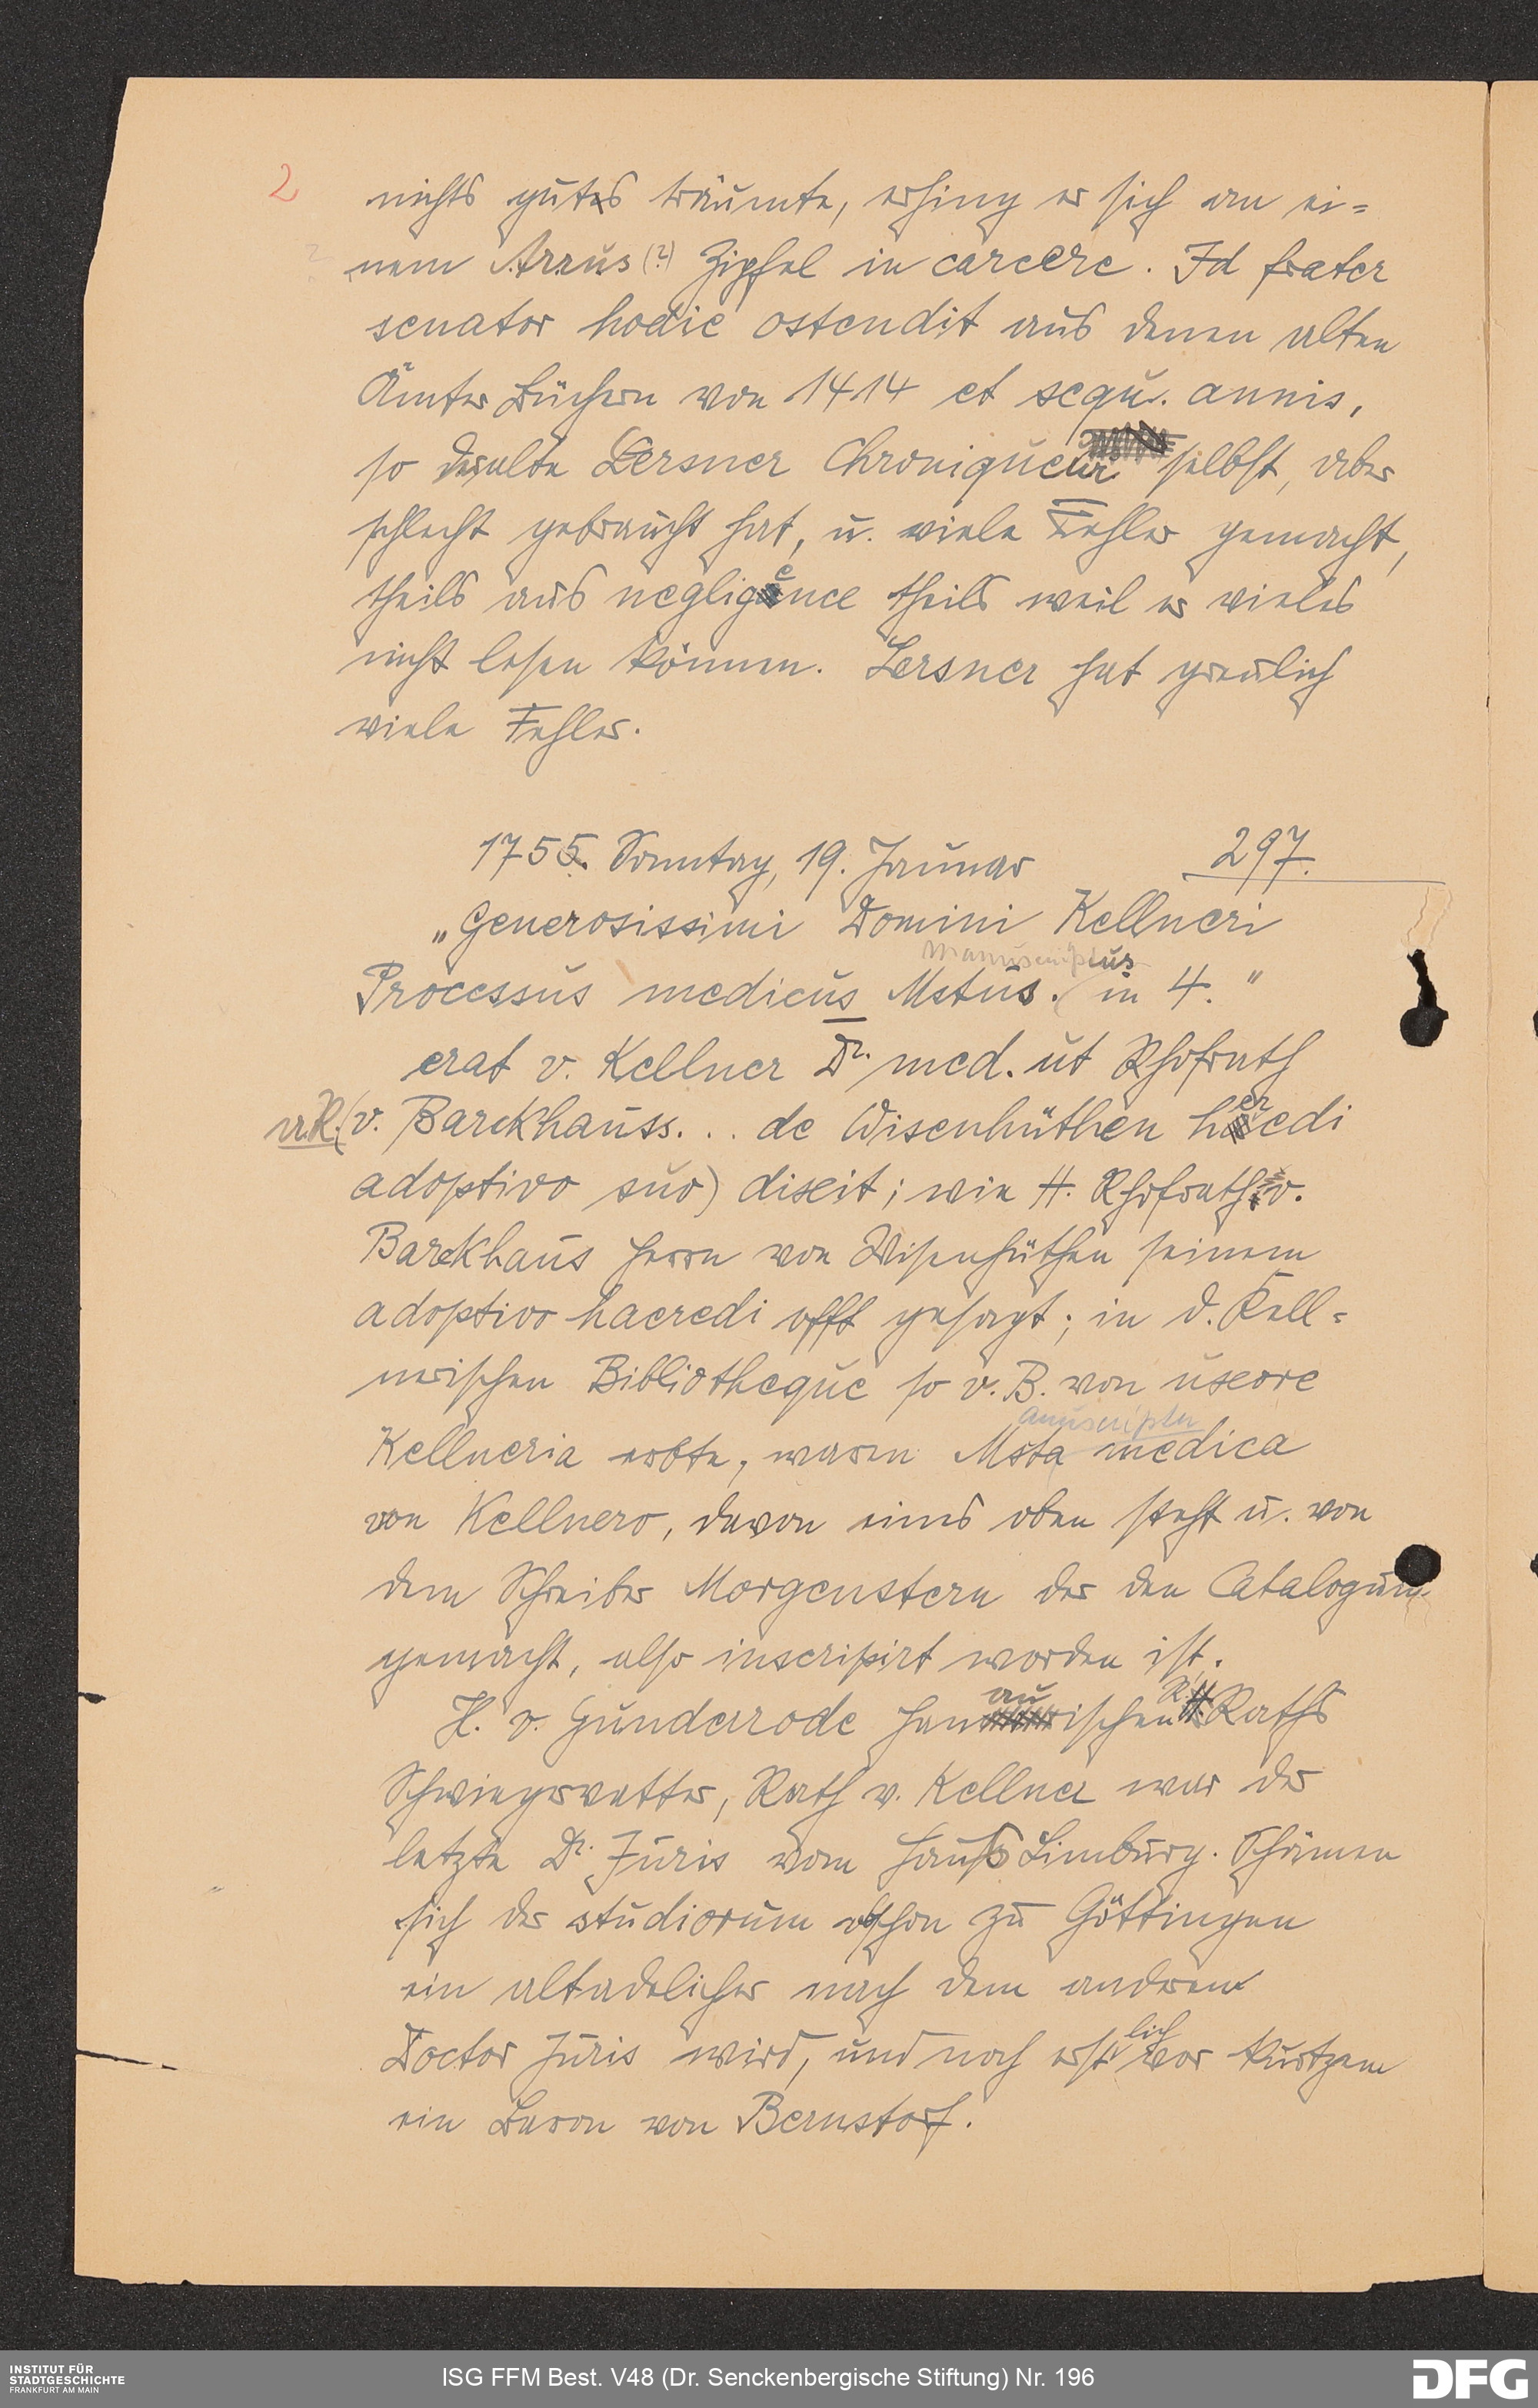 2
nichts gutes träumte, erhing er sich an ei-
nem Arrus(?) Zipfel in carcere. Id frater
senator hodie ostendit aus denen alten
Ämter Büchern von 1414 et sequ. annis,
so der alte Lersner Chroniqueur selbst, aber
schlecht gebraucht hat, u. viele Fehler gemacht,
theils aus negligence theils weil er vieles
nicht lesen können. Lersner hat greulich
viele Fehler.
1755. Sonntag, 19. Januar 297.
„Generosissimi Domini Kellneri
manuscriptus
Processus medicus Mstus. in 4."
erat v. Kellner Dr. med. ut Rhofrath
(v. Barckhauss... de Wisenhüthen heredi
adoptivo suo) dixit; wie H. Rhofrath v.
Barckhaus Herrn von Wisenhüthen seinem
adoptivo haeredi offt gesagt; in d. Kell-
nerischen Bibliotheque so v. B. von uxore
anuscripta
Kellneria erbte, waren Msta medica
von Kellnero, davon eines oben steht u. von
dem Schreiber Morgenstern der den Catalogum
gemacht, also inscripirt worden ist.
H. v. Gunderrode Hanauischen R. Raths
Schwiegervatter, Rath v. Kellner war der
letzte Dr. Juris vom Hauss Limburg. Schämen
sich der studiorum obschon zu Göttingen
ein altadelicher nach dem andern
Doctor Juris wird, und noch erstlich vor kurtzem
ein Baron von Bernstorf.
INSTITUT FÜR
STADTGESCHICHTE
FRANKFURT AM MAIN
ISG FFM Best. V48 (Dr. Senckenbergische Stiftung) Nr. 196
DFG